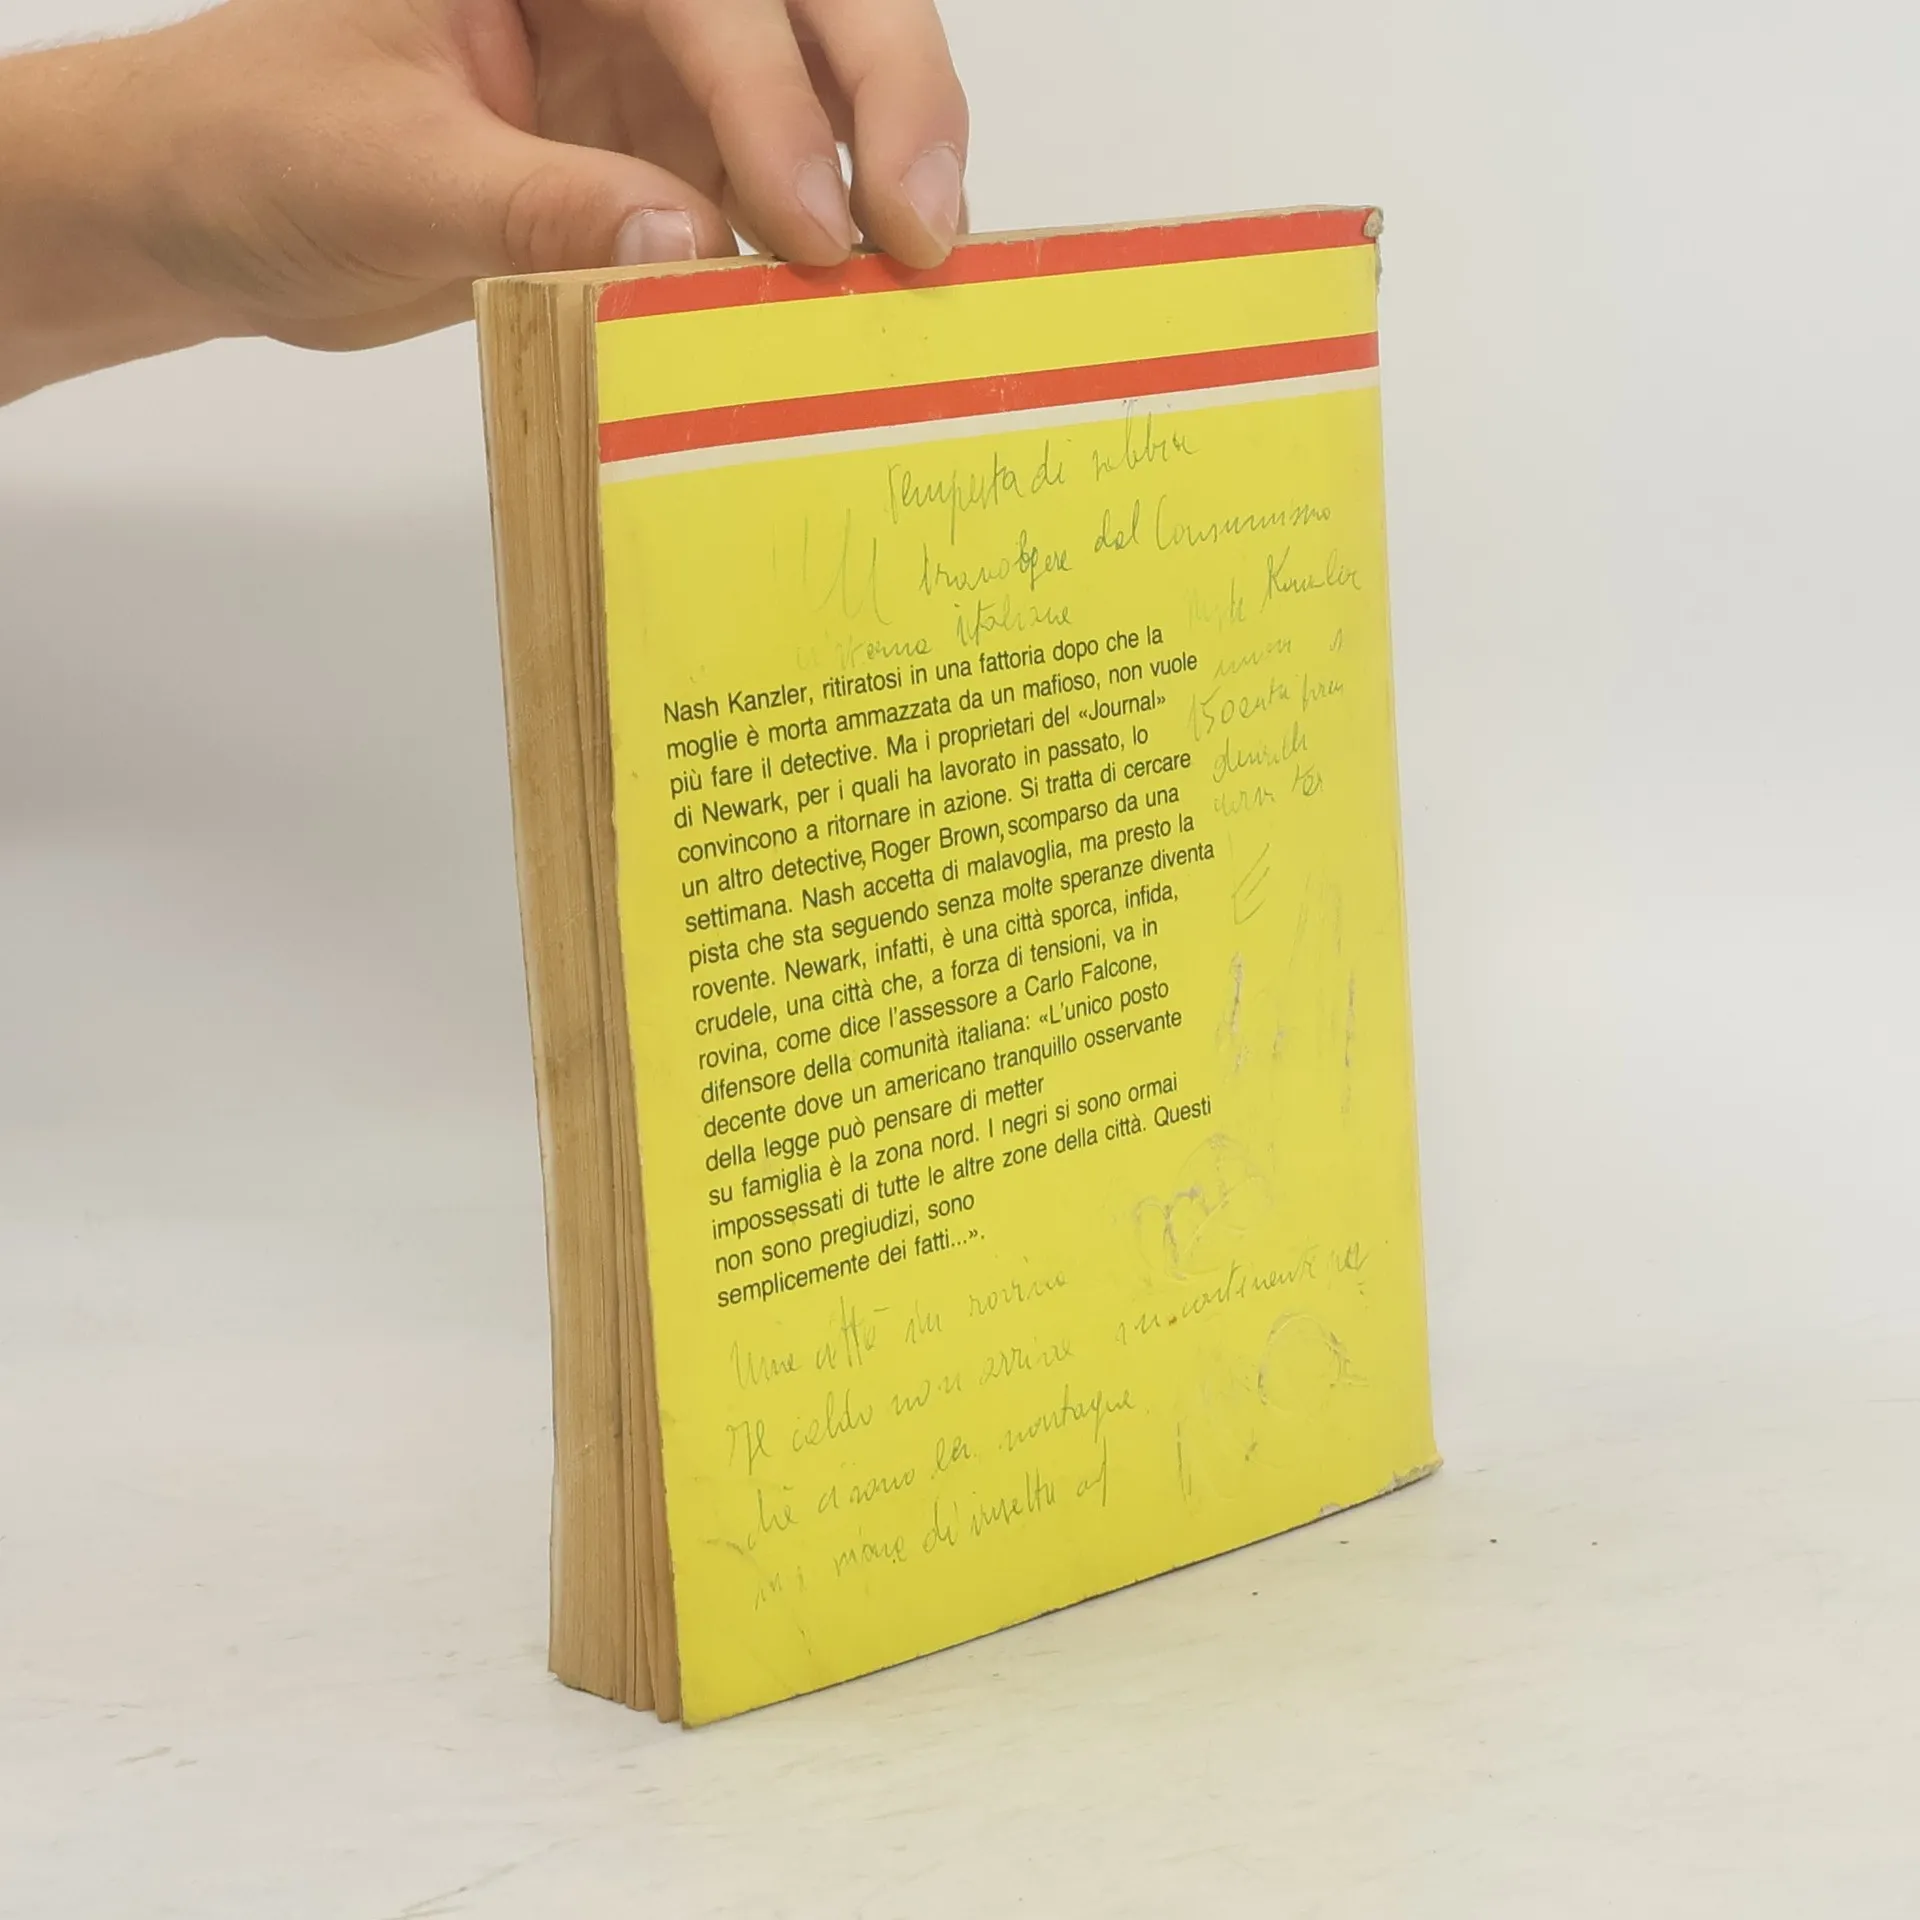 Tempesta di sabbia
travolgere dal Consumismo
italiane
Kanzler
Nash Kanzler, ritiratosi in una fattoria dopo che la
moglie è morta ammazzata da un mafioso, non vuole
più fare il detective. Ma i proprietari del «Journal»
di Newark, per i quali ha lavorato in passato, lo
convincono a ritornare in azione. Si tratta di cercare
un altro detective, Roger Brown, scomparso da una
settimana. Nash accetta di malavoglia, ma presto la
pista che sta seguendo senza molte speranze diventa
rovente. Newark, infatti, è una città sporca, infida,
crudele, una città che, a forza di tensioni, va in
rovina, come dice l'assessore a Carlo Falcone,
difensore della comunità italiana: «L'unico posto
decente dove un americano tranquillo osservante
della legge può pensare di metter
su famiglia è la zona nord. I negri si sono ormai
impossessati di tutte le altre zone della città. Questi
non sono pregiudizi, sono
semplicemente dei fatti...».
Una città in rovina
Il caldo non arriva
ci sono le montagne